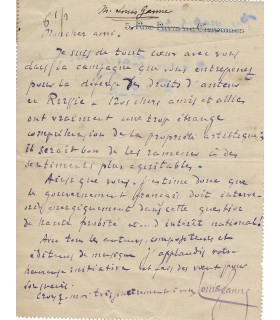 M. Louis Ganne
5, Rue
Mon cher ami,
Je suis de tout cœur avec vous
dans la campagne que vous entreprenez
pour la défense des droits d'auteur
en Russie - Nos chers amis et alliés
ont vraiment une trop étrange
compréhension de la propriété artistique;
il serait bon de les ramener à des
sentiments plus équitables.
Ainsi que vous, j'estime donc que
le gouvernement français doit interve-
nir énergiquement dans cette question
de haute probité et d'intérêt national.
Avec tous les auteurs compositeurs et
éditeurs de musique j'applaudis votre
heureuse initiative et fais des vœux pour
son succès.
Croyez-moi très sincèrement à vous Louis Ganne